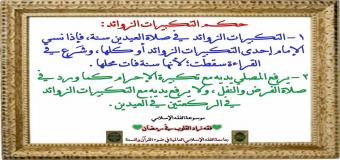 حكم التكبيرات الزوائد :
١ - التكبيرات الزوائد في صلاة العيدين سنة، فإذا نسي
الإمام إحدى التكبيرات الزوائد أو كلها، وشرع في
القراءة سقطت؛ لأنها سنة فات محلها .
٢ - يرفع المصلي يديه مع تكبيرة الإحرام كما ورد في
صلاة الفرض والنفل ، ولا يرفع يديه مع التكبيرات الزوائد
في الركعتين في العيدين .
موسوعة الفقه الإسلامي
فقه زاد القلوب في رمضان
جامعة الفقه الإسلامي العالمية في ضوء القرآن والسنة